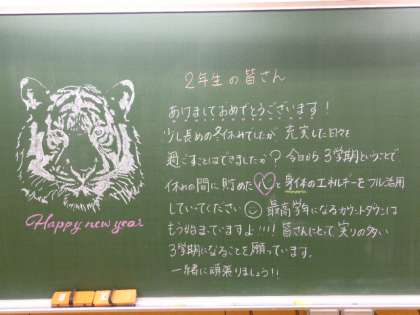 2年生の皆さん
あけましておめでとうございます！
少し長めの冬休みでしたが 充実した日々を
過ごすことはできましたか？ 今日から3学期ということで
休みの間に貯めた心と身体のエネルギーをフル活用
していってください 最高学年になるカウントダウンは
もう始まっていますよ！！！ 皆さんにとって実りの多い
3学期になることを願っています。
一緒に頑張りましょう！！
Happy new year